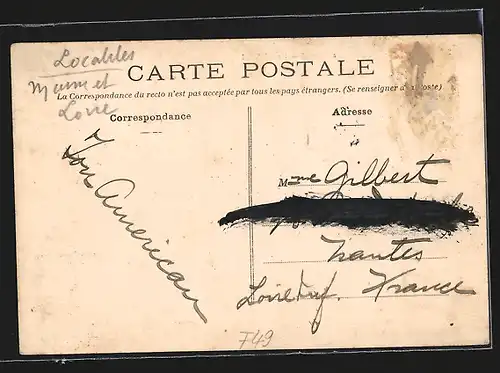 Localités
Maine et
Loire
CARTE POSTALE
La Correspondance du recto n'est pas acceptée par tous les pays étrangers. (Se renseigner à la Poste)
Correspondance
Adresse
Ton American
Mme Gilbert
Nantes
Loire Inf. France
F49